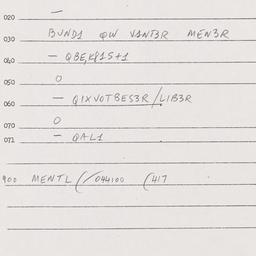 020 —
030 BUND1 QW V1NT3R MEN3R
040 — QBE,KP1S+1
050 O
060 — Q1XVOTBES3R/L1B3R
070 O
071 — QAL1
900 MENTL (/044100 (417